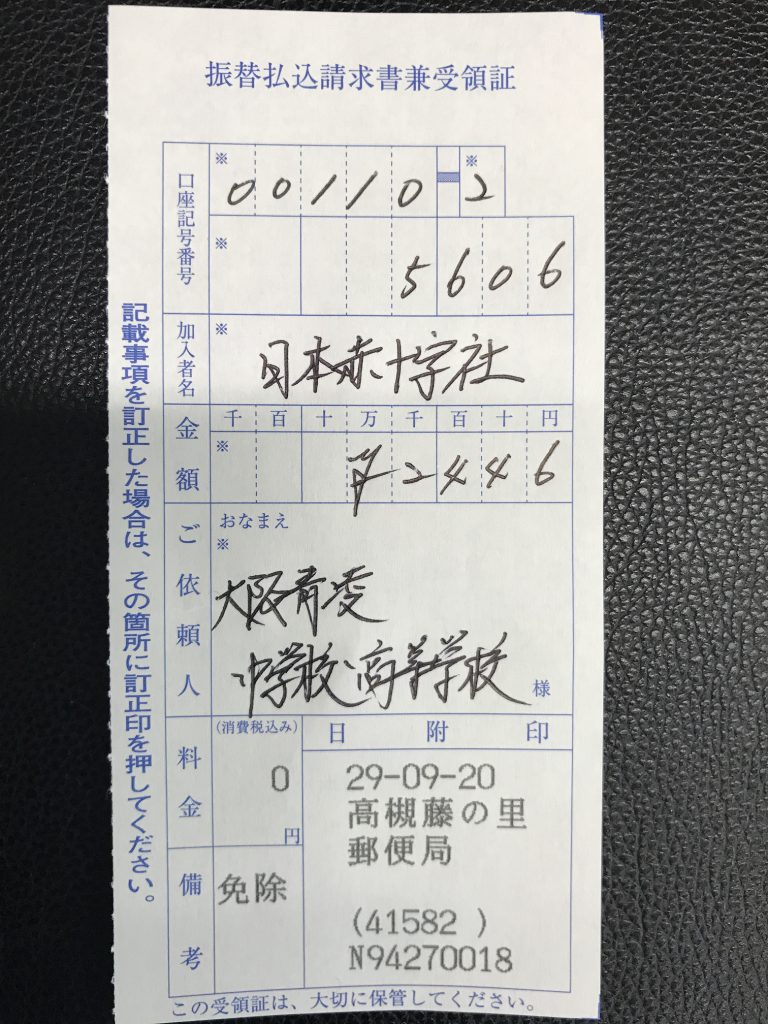 振替払込請求書兼受領証
口座記号番号
※ 00110-※2
※ 5606
加入者名
※ 日本赤十字社
金額
千百十万千百十円
※ ¥2446
ご依頼人
おなまえ
※
大阪青凌
中学校・高等学校 様
料金
(消費税込み)
0
円
備考
免除
日附印
29-09-20
高槻藤の里
郵便局
(41582 )
N94270018
記載事項を訂正した場合は、その箇所に訂正印を押してください。
この受領証は、大切に保管してください。